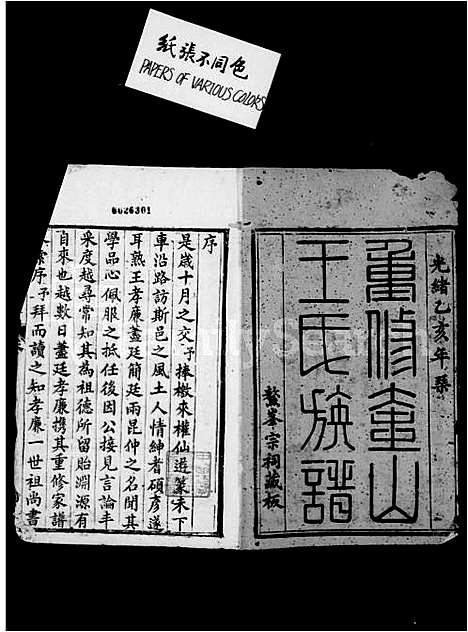 紙張不同色
PAPERS OF VARIOUS COLORS
0026301
光緒乙亥年
重修金山
王氏族譜
鰲峯宗祠藏板
序
是歲十月之交予捧檄來權仙遊篆未下
車沿路訪斯邑之風土人情紳耆碩彥遂
耳熟王孝廉藎廷簡廷兩昆仲之名聞其
學品心佩服之抵任後因公接見言論丰
采度越尋常知其為祖德所留貽淵源有
自來也越數日藎廷孝廉携其重修家譜
序予拜而讀之知孝廉一世祖尚書